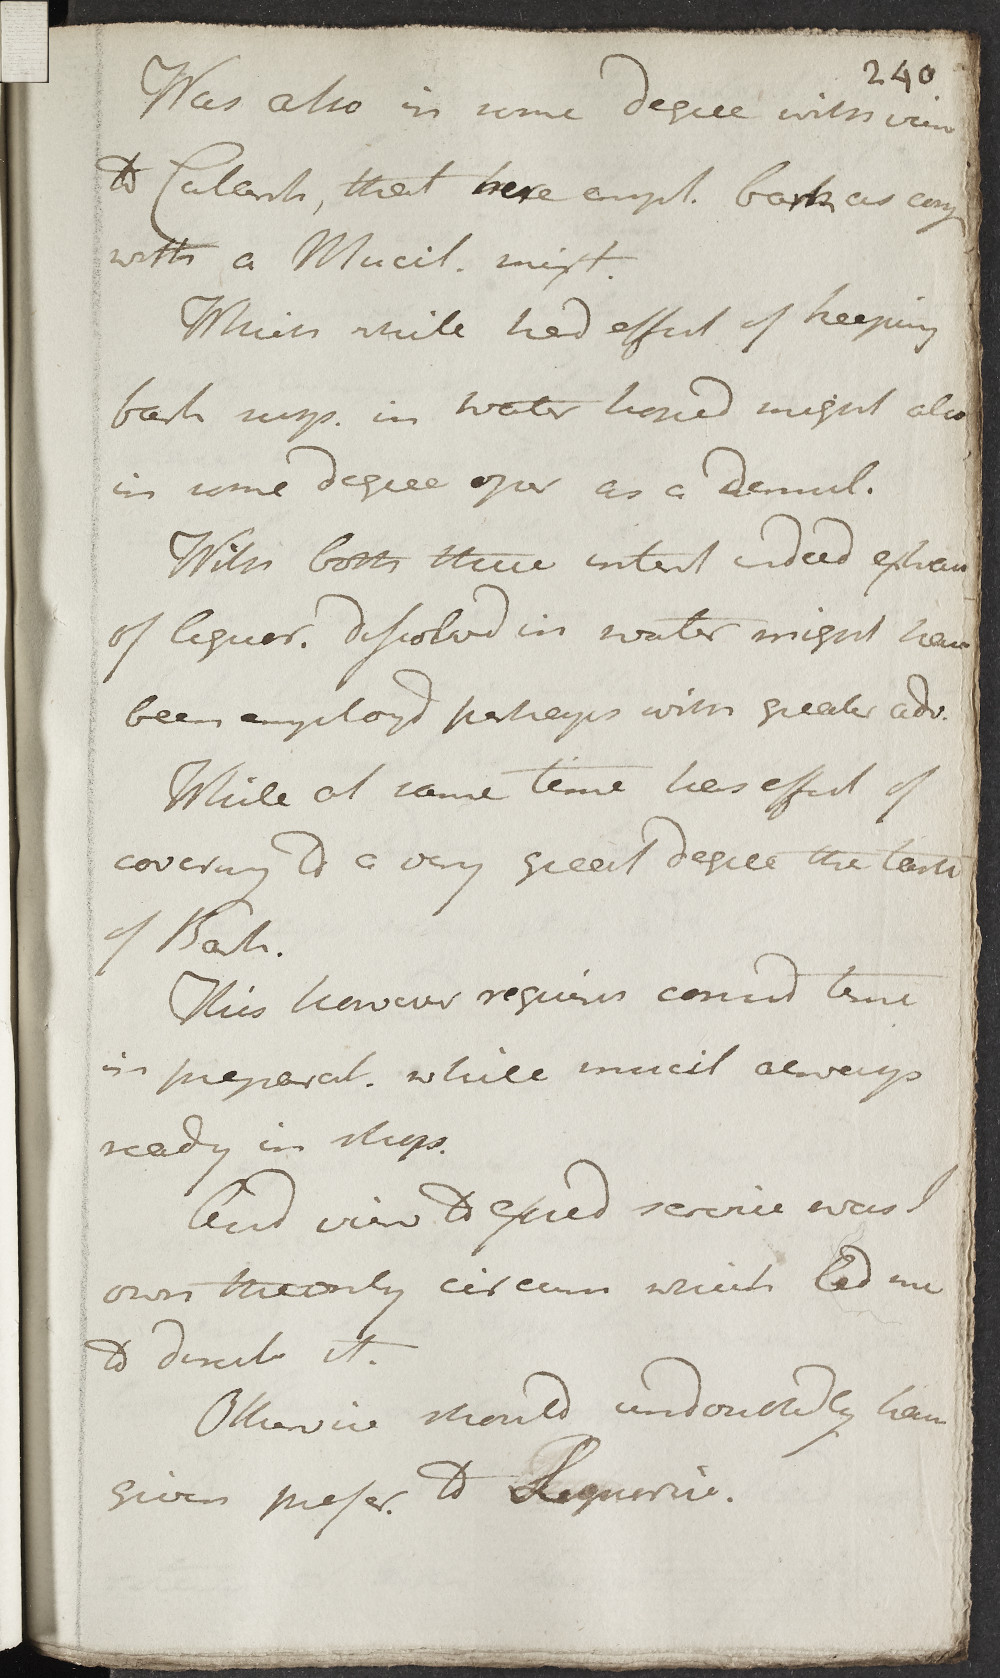 240
Was also in some degree with view
to Catarrh, that here empl. bark as conj
with a Mucil. mixt.
Which while had effect of keeping
bark susp. in water hoped might also
in some degree oper as a demul.
With both these intent indeed extract
of liquor. dissolved in water might have
been employd perhaps with greater adv.
While at same time has effect of
covering to a very great degree the taste
of Bark.
This however requires consid time
in preparat. while mucil always
ready in shops.
And view to exped service was I
own the only circum which led me
to direct it.
Otherwise should undoubtedly have
given prefer. to Liquorice.